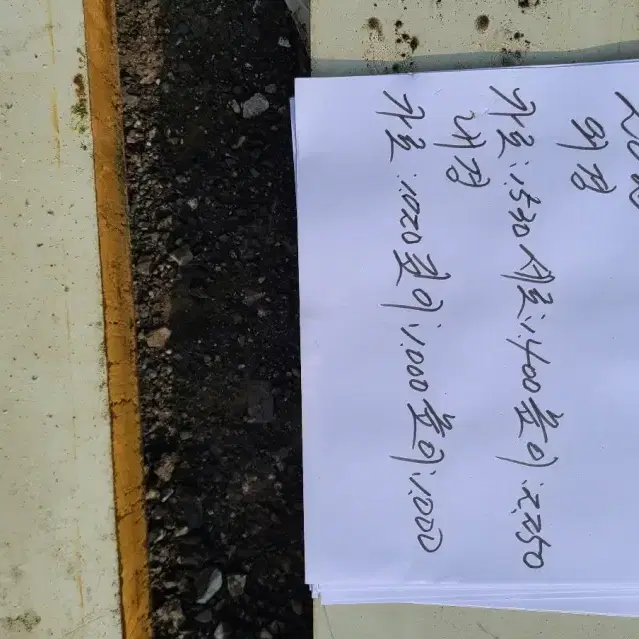 외경
가로:1530 세로:1400 높이:2.250
내경
가로:1020 폭이:1.000 높이:1.000